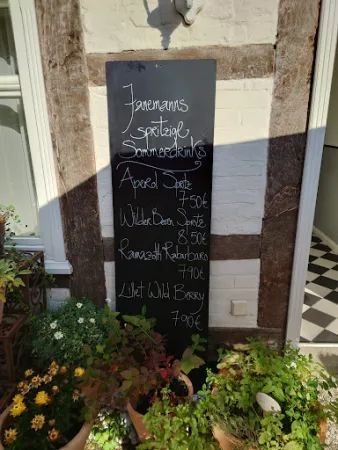 Janemanns
spritzige
Sommerdrinks
Aperol Spritz
7.50€
Wilder Beeren Spritz
8.50€
Ramazotti Rabarbaro
7.90€
Lillet Wild Berry
7.90€